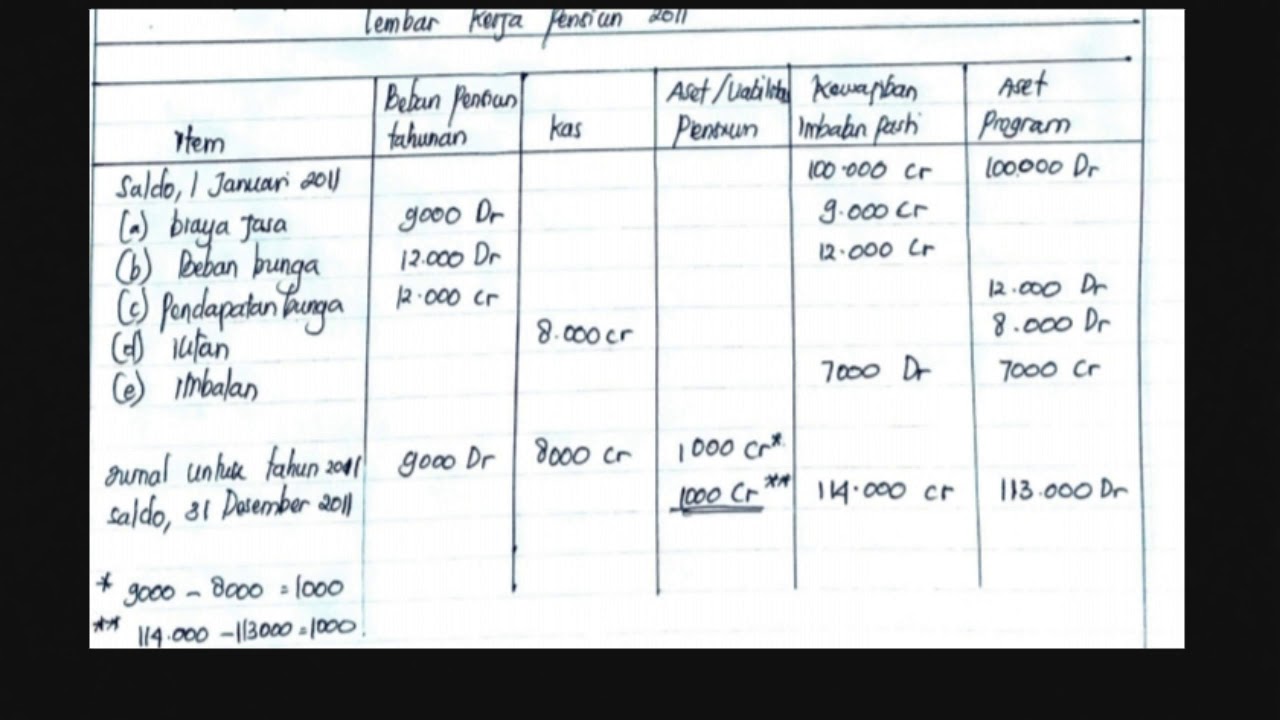 lembar kerja pensiun 2011
Item Beban Pensiun tahunan kas Aset/Liabilitas Pensiun Kewajiban Imbalan Pasti Aset Program
Saldo, 1 Januari 2011 100.000 cr 100.000 Dr
(a) biaya jasa 9000 Dr 9.000 Cr
(b) Beban bunga 12.000 Dr 12.000 Cr
(c) Pendapatan bunga 12.000 cr 12.000 Dr
(d) iutan 8.000 cr 8.000 Dr
(e) imbalan 7000 Dr 7000 Cr
Jurnal untuk tahun 2011 9000 Dr 8000 cr 1000 Cr*
saldo, 31 Desember 2011 1000 Cr** 114.000 cr 113.000 Dr
* 9000 - 8000 = 1000
** 114.000 - 113000 = 1000.